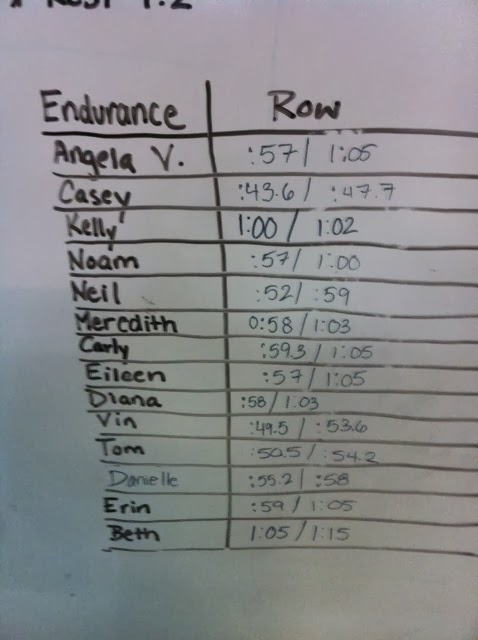 Endurance Row
Angela V. :57/ 1:05
Casey :43.6/ :47.7
Kelly 1:00 / 1:02
Noam :57/ 1:00
Neil :52/ :59
Meredith 0:58/1:03
Carly :59.3/1:05
Eileen :57/1:05
Diana :58/1:03
Vin :49.5/ :53.6
Tom :50.5/ :54.2
Danielle :55.2/ :58
Erin :59/ 1:05
Beth 1:05/1:15